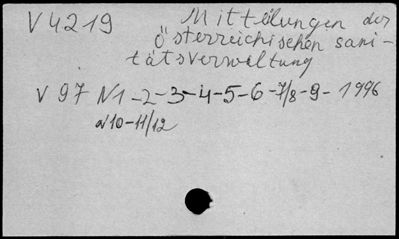 V 4219 Mittëlungen der
Österreichischen sani-
tätsverwaltung
V 97 N1-2-3-4-5-6-7/8-9- 1996
N10-11/12